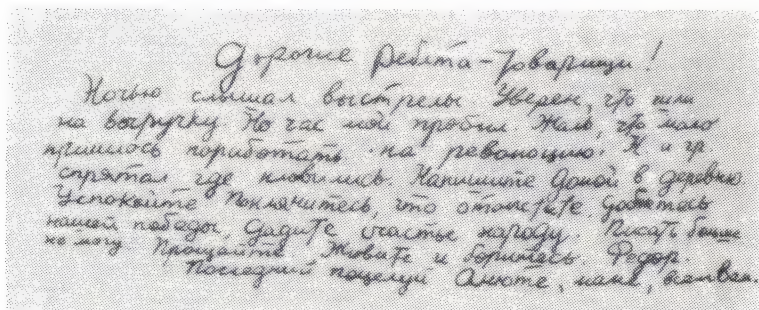 Дорогие ребята-товарищи!
Ночью слышал выстрелы. Уверен, что шли
на выручку. Но час мой пробил. Жаль, что мало
пришлось поработать на революцию. И гр.
спрятал где клавились. Напишите домой в деревню.
Успокойте. Поклянитесь, что отомстите, добьетесь
нашей победы, дадите счастье народу. Писать больше
не могу. Прощайте. Живите и боритесь. Федор.
Последний поцелуй Анюте, маме, всем Вам.